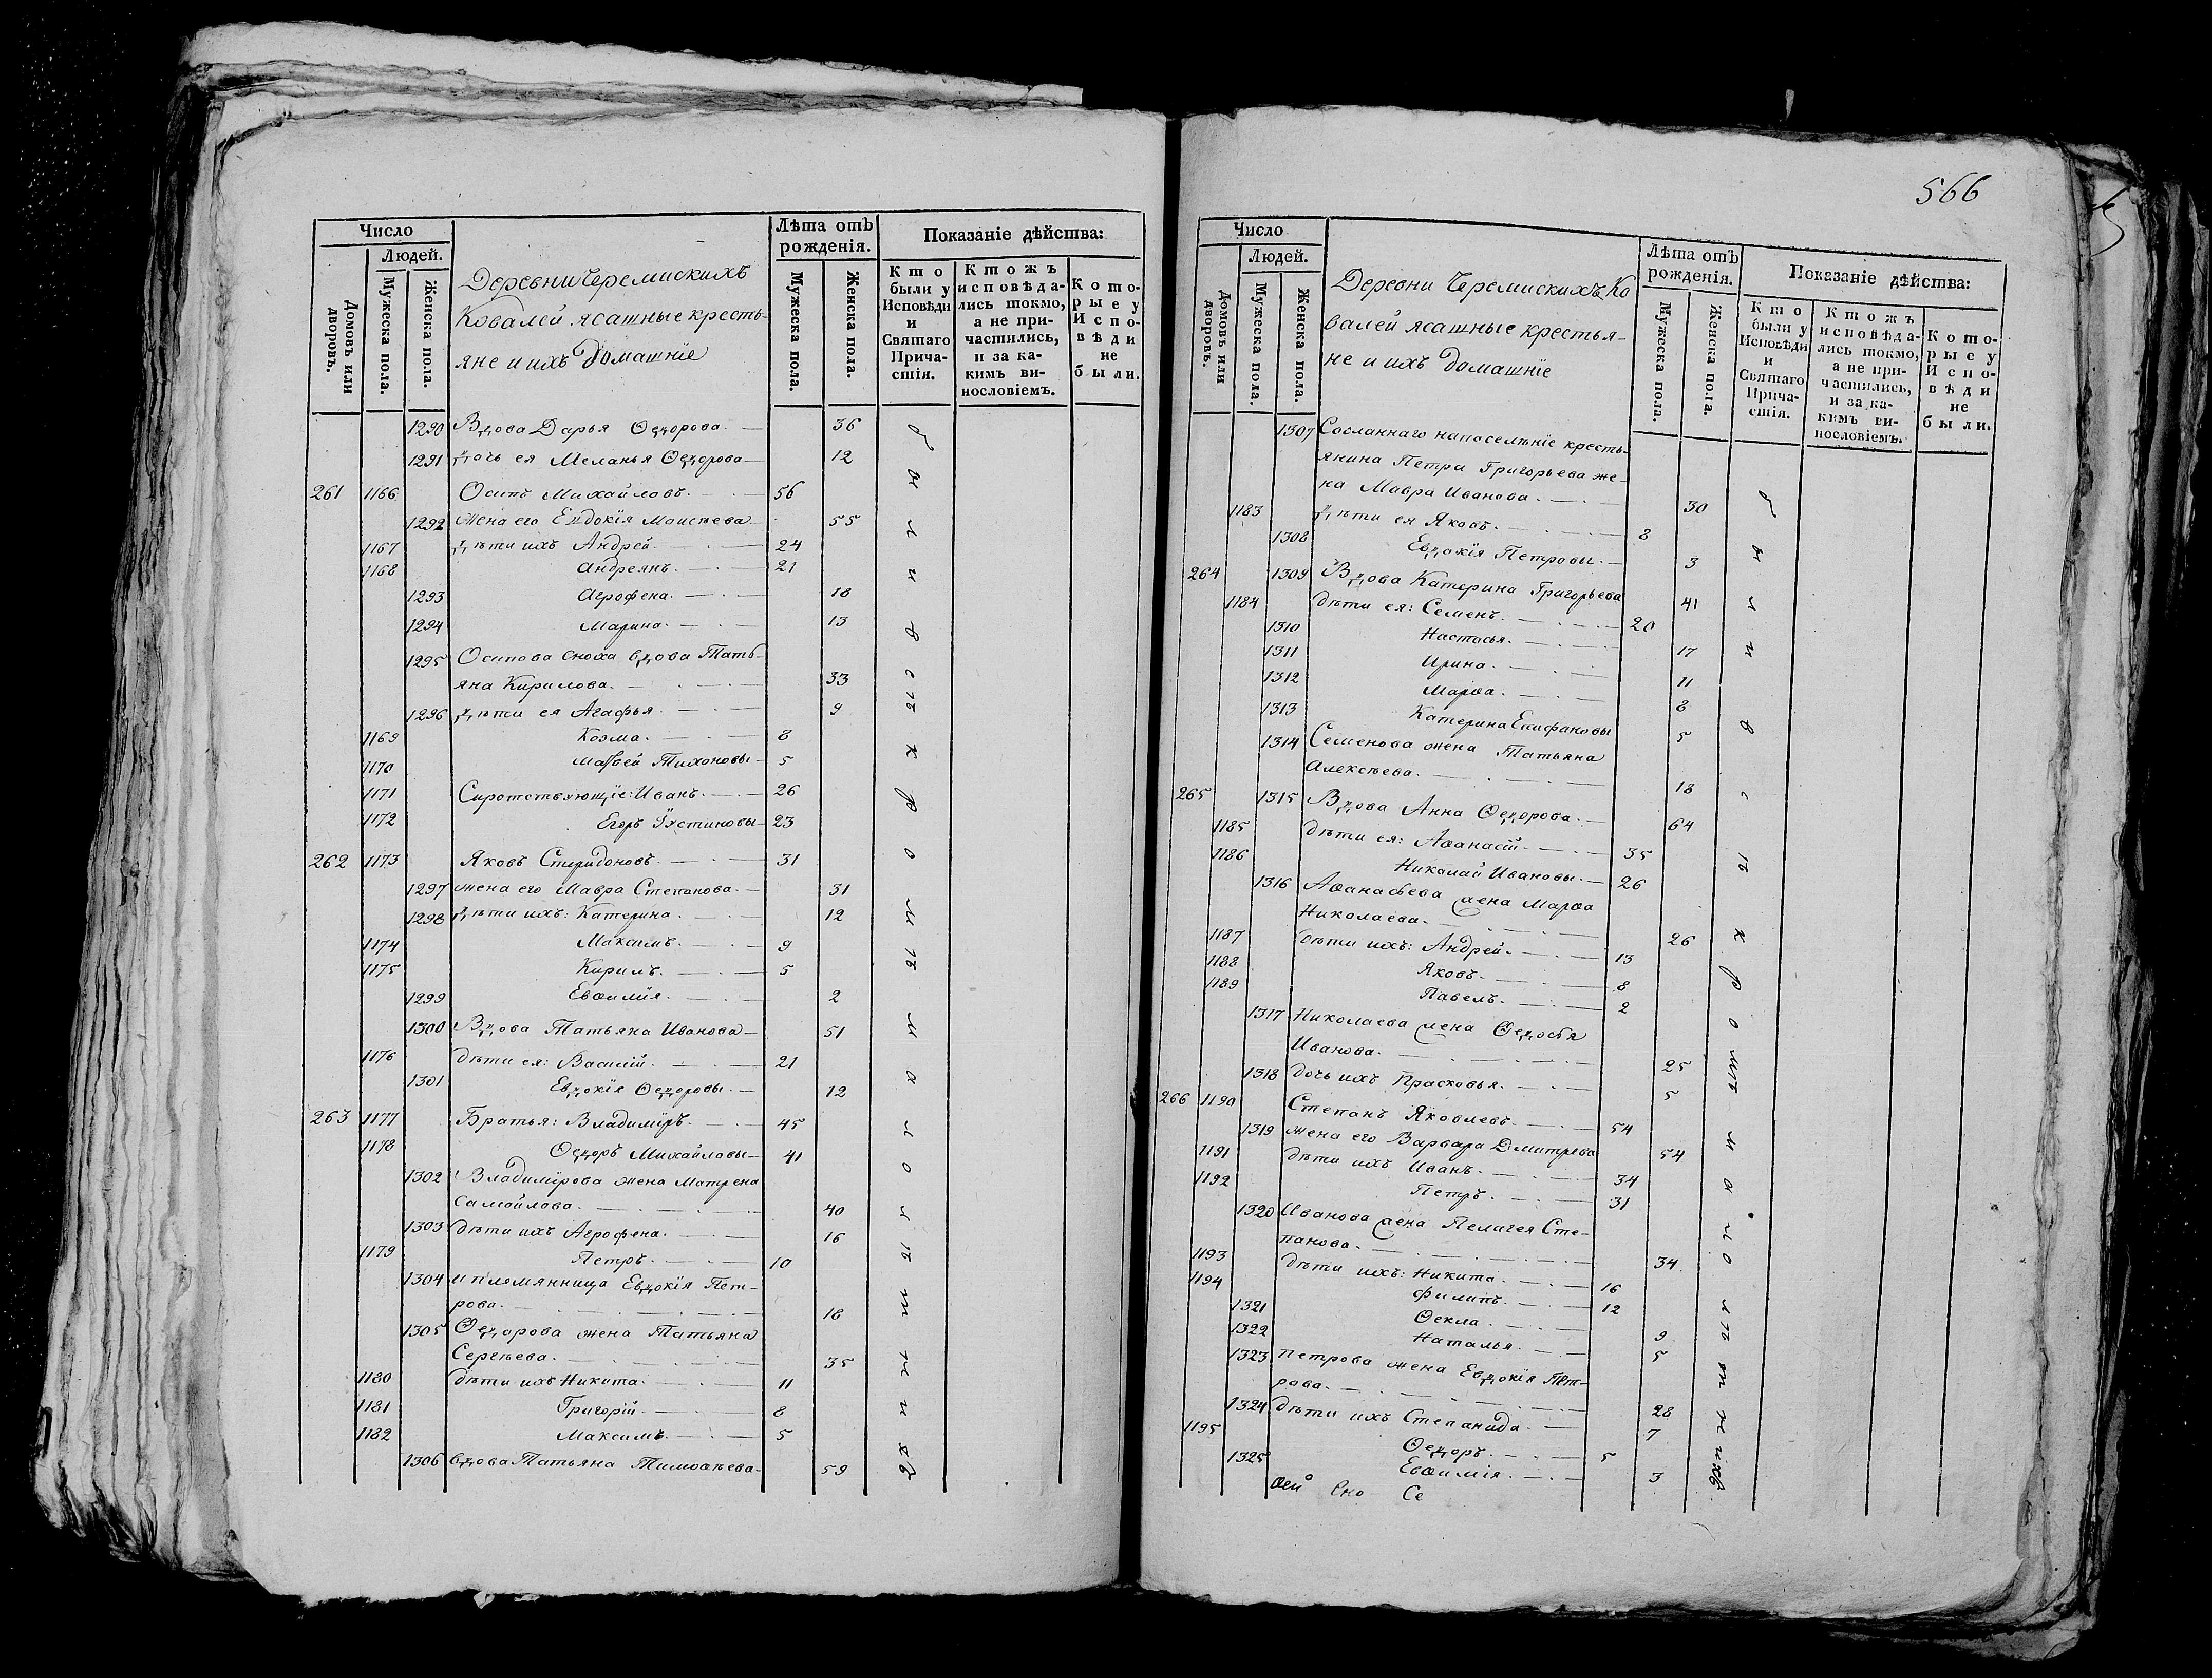 Число
Людей.
Домовъ или дворовъ.
Мужеска пола.
Женска пола.
Деревни Черемискихъ
Ковалей ясашные кресть-
яне и ихъ домашнiе
Лѣта отъ рожденiя.
Мужеска пола.
Женска пола.
Показанiе дѣйства:
Кто были у Исповѣди и Святаго Причастiя.
Ктожъ исповѣдались токмо, а не причастились, и за какимъ винословiемъ.
Которые у Исповѣди не были.
1290 Вдова Дарья Ѳедорова. 36
1291 дочь ея Меланья Ѳедорова 12
261 1166 Осипъ Михайловъ. 56
1292 жена его Евдокiя Моисѣева 55
1167 дѣти ихъ Андрей. 24
1168 Андреянъ. 21
1293 Агрофена. 18
1294 Марина. 13
1295 Осипова сноха вдова Тать-
яна Кирилова. 33
1296 дѣти ея Агафья. 9
1169 Козма. 8
1170 Матвей Тихоновы 5
1171 Сиротствующiе: Иванъ. 26
1172 Егоръ Устиновы 23
262 1173 Яковъ Спиридоновъ. 31
1297 жена его Мавра Степанова. 31
1298 дѣти ихъ: Катерина. 12
1174 Максимъ. 9
1175 Кирилъ. 5
1299 Евѳимiя. 2
1300 Вдова Татьяна Иванова 51
1176 дѣти ея: Василiй. 21
1301 Евдокiя Ѳедоровы. 12
263 1177 Братья: Владимiръ. 45
1178 Ѳедоръ Михайловы 41
1302 Владимiрова жена Матрена
Самойлова. 40
1303 дѣти ихъ Агрофена. 16
1179 Петръ. 10
1304 и племянница Евдокiя Пет-
рова. 18
1305 Ѳедорова жена Татьяна
Сергѣева. 35
1180 дѣти ихъ Никита. 11
1181 Григорiй. 8
1182 Максимъ. 5
1306 вдова Татьяна Тимоѳѣева 59
были всѣ кромѣ малолѣтнихъ
566
Число
Людей.
Домовъ или дворовъ.
Мужеска пола.
Женска пола.
Деревни Черемискихъ Ко
валей ясашные крестья-
не и ихъ домашнiе
Лѣта отъ рожденiя.
Мужеска пола.
Женска пола.
Показанiе дѣйства:
Кто были у Исповѣди и Святаго Причастiя.
Ктожъ исповѣдались токмо, а не причастились, и за какимъ винословiемъ.
Которые у Исповѣди не были.
1307 Сосланнаго напоселѣнiе кресть-
янина Петра Григорьева же-
на Мавра Иванова. 30
1183 дѣти ея Яковъ. 8
1308 Евдокiя Петровы. 3
264 1309 Вдова Катерина Григорьева 41
1184 дѣти ея: Семенъ. 20
1310 Настасья. 17
1311 Ирина. 11
1312 Марѳа. 8
1313 Катерина Епифановы 5
1314 Семенова жена Татьяна
Алексѣева. 18
265 1315 Вдова Анна Ѳедорова. 64
1185 дѣти ея: Аѳанасiй. 35
1186 Николай Ивановы. 26
1316 Аѳанасьева жена Марѳа
Николаева. 26
1187 дѣти ихъ: Андрей. 13
1188 Яковъ. 8
1189 Павелъ. 2
1317 Николаева жена Ѳедосья
Иванова. 25
1318 дочь ихъ Прасковья. 5
266 1190 Степанъ Яковлевъ. 54
1319 жена его Варвара Дмитрева 54
1191 дѣти ихъ Иванъ. 34
1192 Петръ. 31
1320 Иванова жена Пелагея Сте-
панова. 34
1193 дѣти ихъ: Никита. 16
1194 Филипъ. 12
1321 Ѳекла. 9
1322 Наталья. 5
1323 Петрова жена Евдокiя Пет-
рова. 28
1324 дѣти ихъ Степанида. 7
1195 Ѳедоръ. 5
1325 Евѳимiя. 3
были всѣ кромѣ малолѣтнихъ.